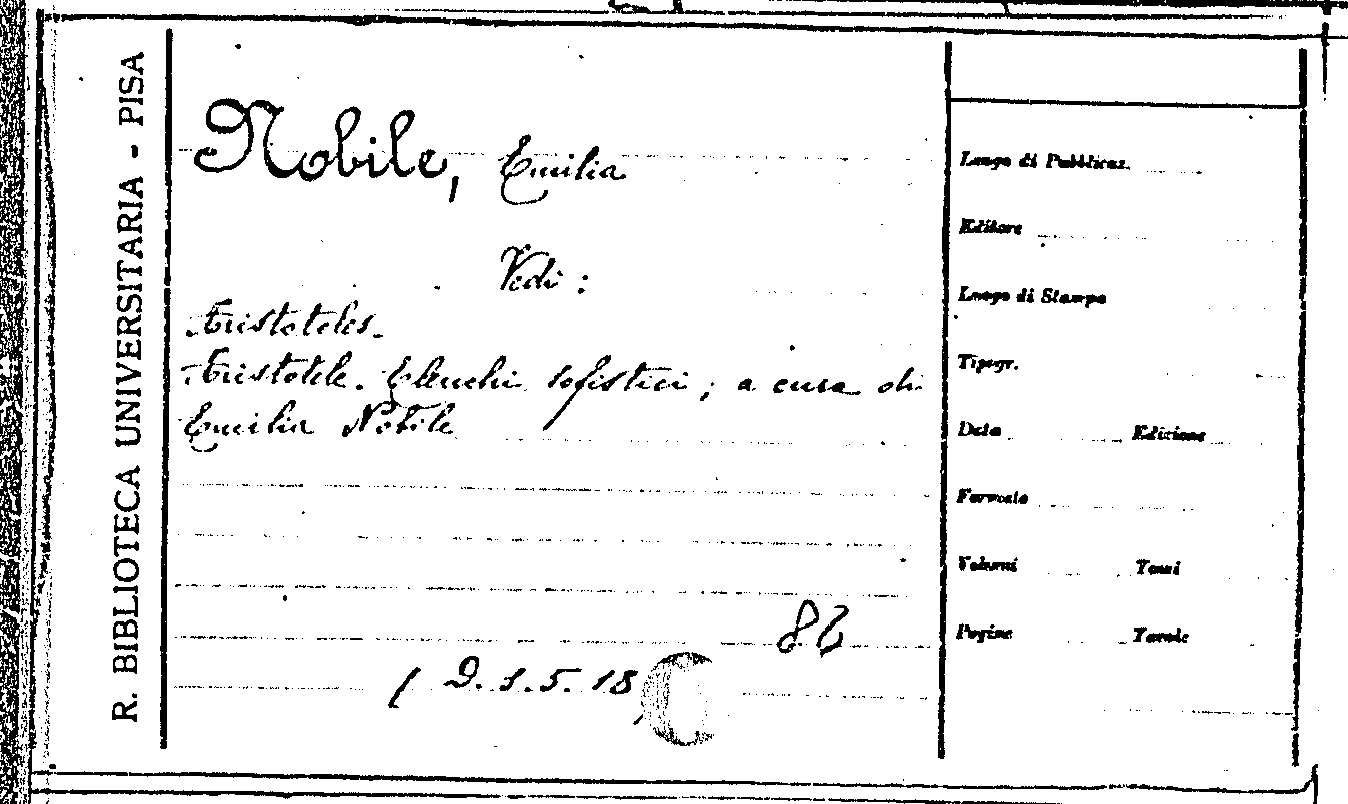 R. BIBLIOTECA UNIVERSITARIA - PISA
Nobile, Emilia
Vedi :
Aristoteles.
Aristotele. Elenchi sofistici ; a cura di
Emilia Nobile
D. 1. 5. 18
Luogo di Pubblicaz.
Editore
Luogo di Stampa
Tipogr.
Data Edizione
Formato
Volumi Tomi
Pagine Tavole